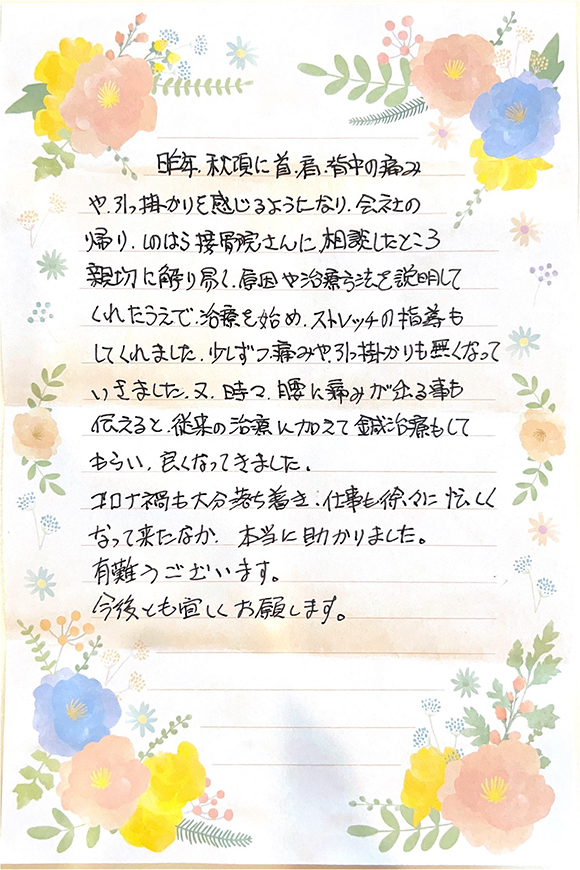 昨年、秋頃に首、肩、背中の痛み
や、引っ掛かりを感じるようになり、会社の
帰り、しのはら接骨院さんに、相談したところ
親切に解り易く、原因や治療方法を説明して
くれたうえで、治療を始め、ストレッチの指導も
してくれました。少しずつ痛みや、引っ掛かりも無くなって
いきました。又、時々、腰に痛みが出る事も
伝えると、従来の治療に加えて鍼治療もして
もらい、良くなってきました。
コロナ禍も大分落ち着き、仕事も徐々に忙しく
なって来たなか、本当に助かりました。
有難うございます。
今後とも宜しくお願します。